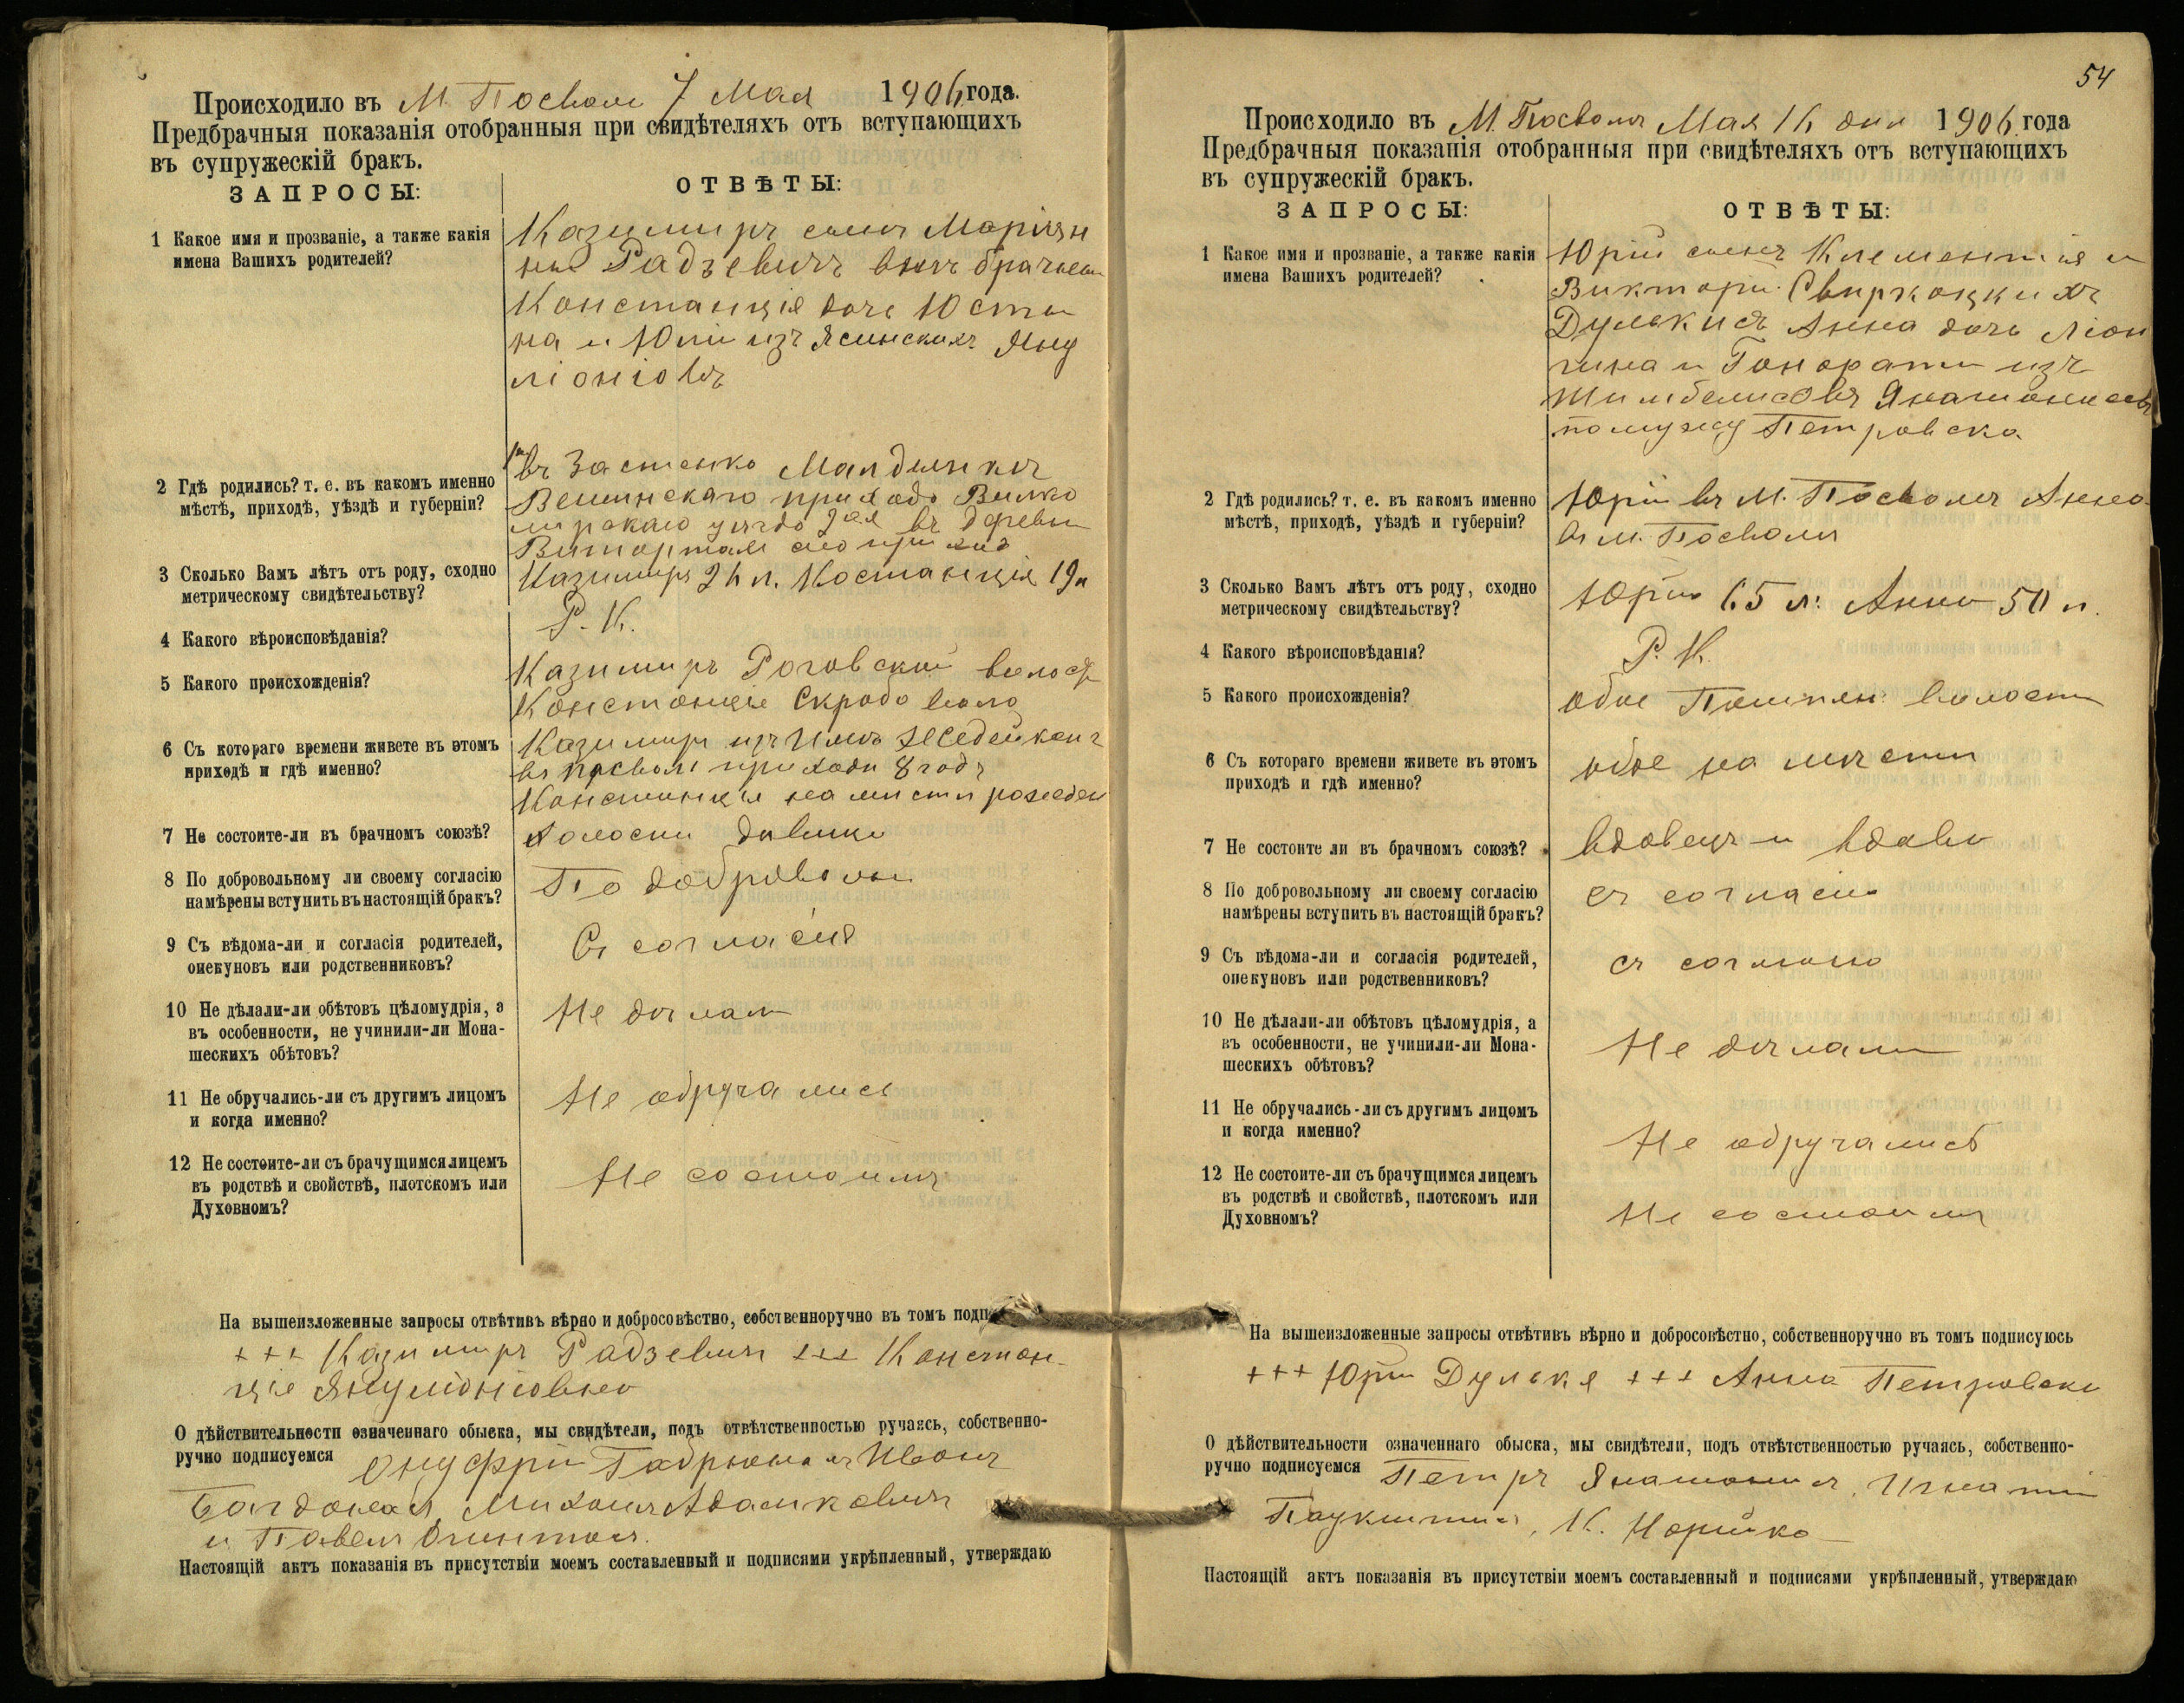 Происходило въ М. Посволи 7 Мая 1906 года.
Предбрачныя показанія отобранныя при свидѣтеляхъ отъ вступающихъ
въ супружескій бракъ.
ЗАПРОСЫ:
ОТВѢТЫ:
1 Какое имя и прозваніе, а также какія
имена Вашихъ родителей?
Казимиръ сынъ Маріян
ны Радзевичъ внѣ брачный
Констанція дочь Юсти
на и Юліи изъ Ясинскихъ Яну
ліонісовъ
2 Гдѣ родились? т. е. въ какомъ именно
мѣстѣ, приходѣ, уѣздѣ и губерніи?
въ Застенкѣ
прихода Вилко
мирскаго уѣзда 2ая въ деревнѣ
3 Сколько Вамъ лѣтъ отъ роду, сходно
метрическому свидѣтельству?
Казимиръ 26 л. Костанція 19 л
4 Какого вѣроисповѣданія?
Р. К.
5 Какого происхожденія?
Казимиръ Роговской волост
Констанція Скробо воло
6 Съ котораго времени живете въ этомъ
приходѣ и гдѣ именно?
Казимиръ изъ
въ Посвол приходи 8 годъ
Констанція на мисти рожеден
7 Не состоите-ли въ брачномъ союзѣ?
Холости дивица
8 По добровольному ли своему согласію
намѣрены вступить въ настоящій бракъ?
По доброволы
9 Съ вѣдома-ли и согласія родителей,
опекуновъ или родственниковъ?
Съ согласія
10 Не дѣлали-ли обѣтовъ цѣломудрія, а
въ особенности, не учинили-ли Мона-
шескихъ обѣтовъ?
Не дѣлали
11 Не обручались-ли съ другимъ лицомъ
и когда именно?
Не обручались
12 Не состоите-ли съ брачущимся лицемъ
въ родствѣ и свойствѣ, плотскомъ или
Духовномъ?
Не состоимъ
На вышеизложенные запросы отвѣтивъ вѣрно и добросовѣстно, собственноручно въ томъ подпи
+++ Казимиръ Радзевичъ +++ Констан-
ція Януліонісовна
О дѣйствительности означеннаго обыска, мы свидѣтели, подъ отвѣтственностью ручаясь, собственно-
ручно подписуемся Онуфрій Иванъ
Михаилъ Адамковичъ
и Павелъ
Настоящій актъ показанія въ присутствіи моемъ составленный и подписями укрѣпленный, утверждаю
54
Происходило въ М. Посволѣ Мая 16 дня 1906 года
Предбрачныя показанія отобранныя при свидѣтеляхъ отъ вступающихъ
въ супружескій бракъ.
ЗАПРОСЫ:
ОТВѢТЫ:
1 Какое имя и прозваніе, а также какія
имена Вашихъ родителей?
Юрій сынъ Клементія и
Викторіи
Дулькисъ Анна дочь Лион
гина и Гонораты изъ
по мужу Петровска
2 Гдѣ родились? т. е. въ какомъ именно
мѣстѣ, приходѣ, уѣздѣ и губерніи?
Юрій въ М. Посволѣ Анна
въ м. Посволи
3 Сколько Вамъ лѣтъ отъ роду, сходно
метрическому свидѣтельству?
Юрій 65 л: Анна 50 л.
4 Какого вѣроисповѣданія?
Р. К.
5 Какого происхожденія?
обое волости
6 Съ котораго времени живете въ этомъ
приходѣ и гдѣ именно?
обое на мѣсти
7 Не состоите ли въ брачномъ союзѣ?
вдовецъ и вдова
8 По добровольному ли своему согласію
намѣрены вступить въ настоящій бракъ?
съ согласія
9 Съ вѣдома-ли и согласія родителей,
опекуновъ или родственниковъ?
съ
10 Не дѣлали-ли обѣтовъ цѣломудрія, а
въ особенности, не учинили-ли Мона-
шескихъ обѣтовъ?
Не дѣлали
11 Не обручались-ли съ другимъ лицемъ
и когда именно?
Не обручались
12 Не состоите-ли съ брачущимся лицемъ
въ родствѣ и свойствѣ, плотскомъ или
Духовномъ?
Не состоимъ
На вышеизложенные запросы отвѣтивъ вѣрно и добросовѣстно, собственноручно въ томъ подписуюсь
+++ Юрій Дулькя +++ Анна Петровска
О дѣйствительности означеннаго обыска, мы свидѣтели, подъ отвѣтственностью ручаясь, собственно-
ручно подписуемся Петръ Игнатій
К. Норейко
Настоящій актъ показанія въ присутствіи моемъ составленный и подписями укрѣпленный, утверждаю